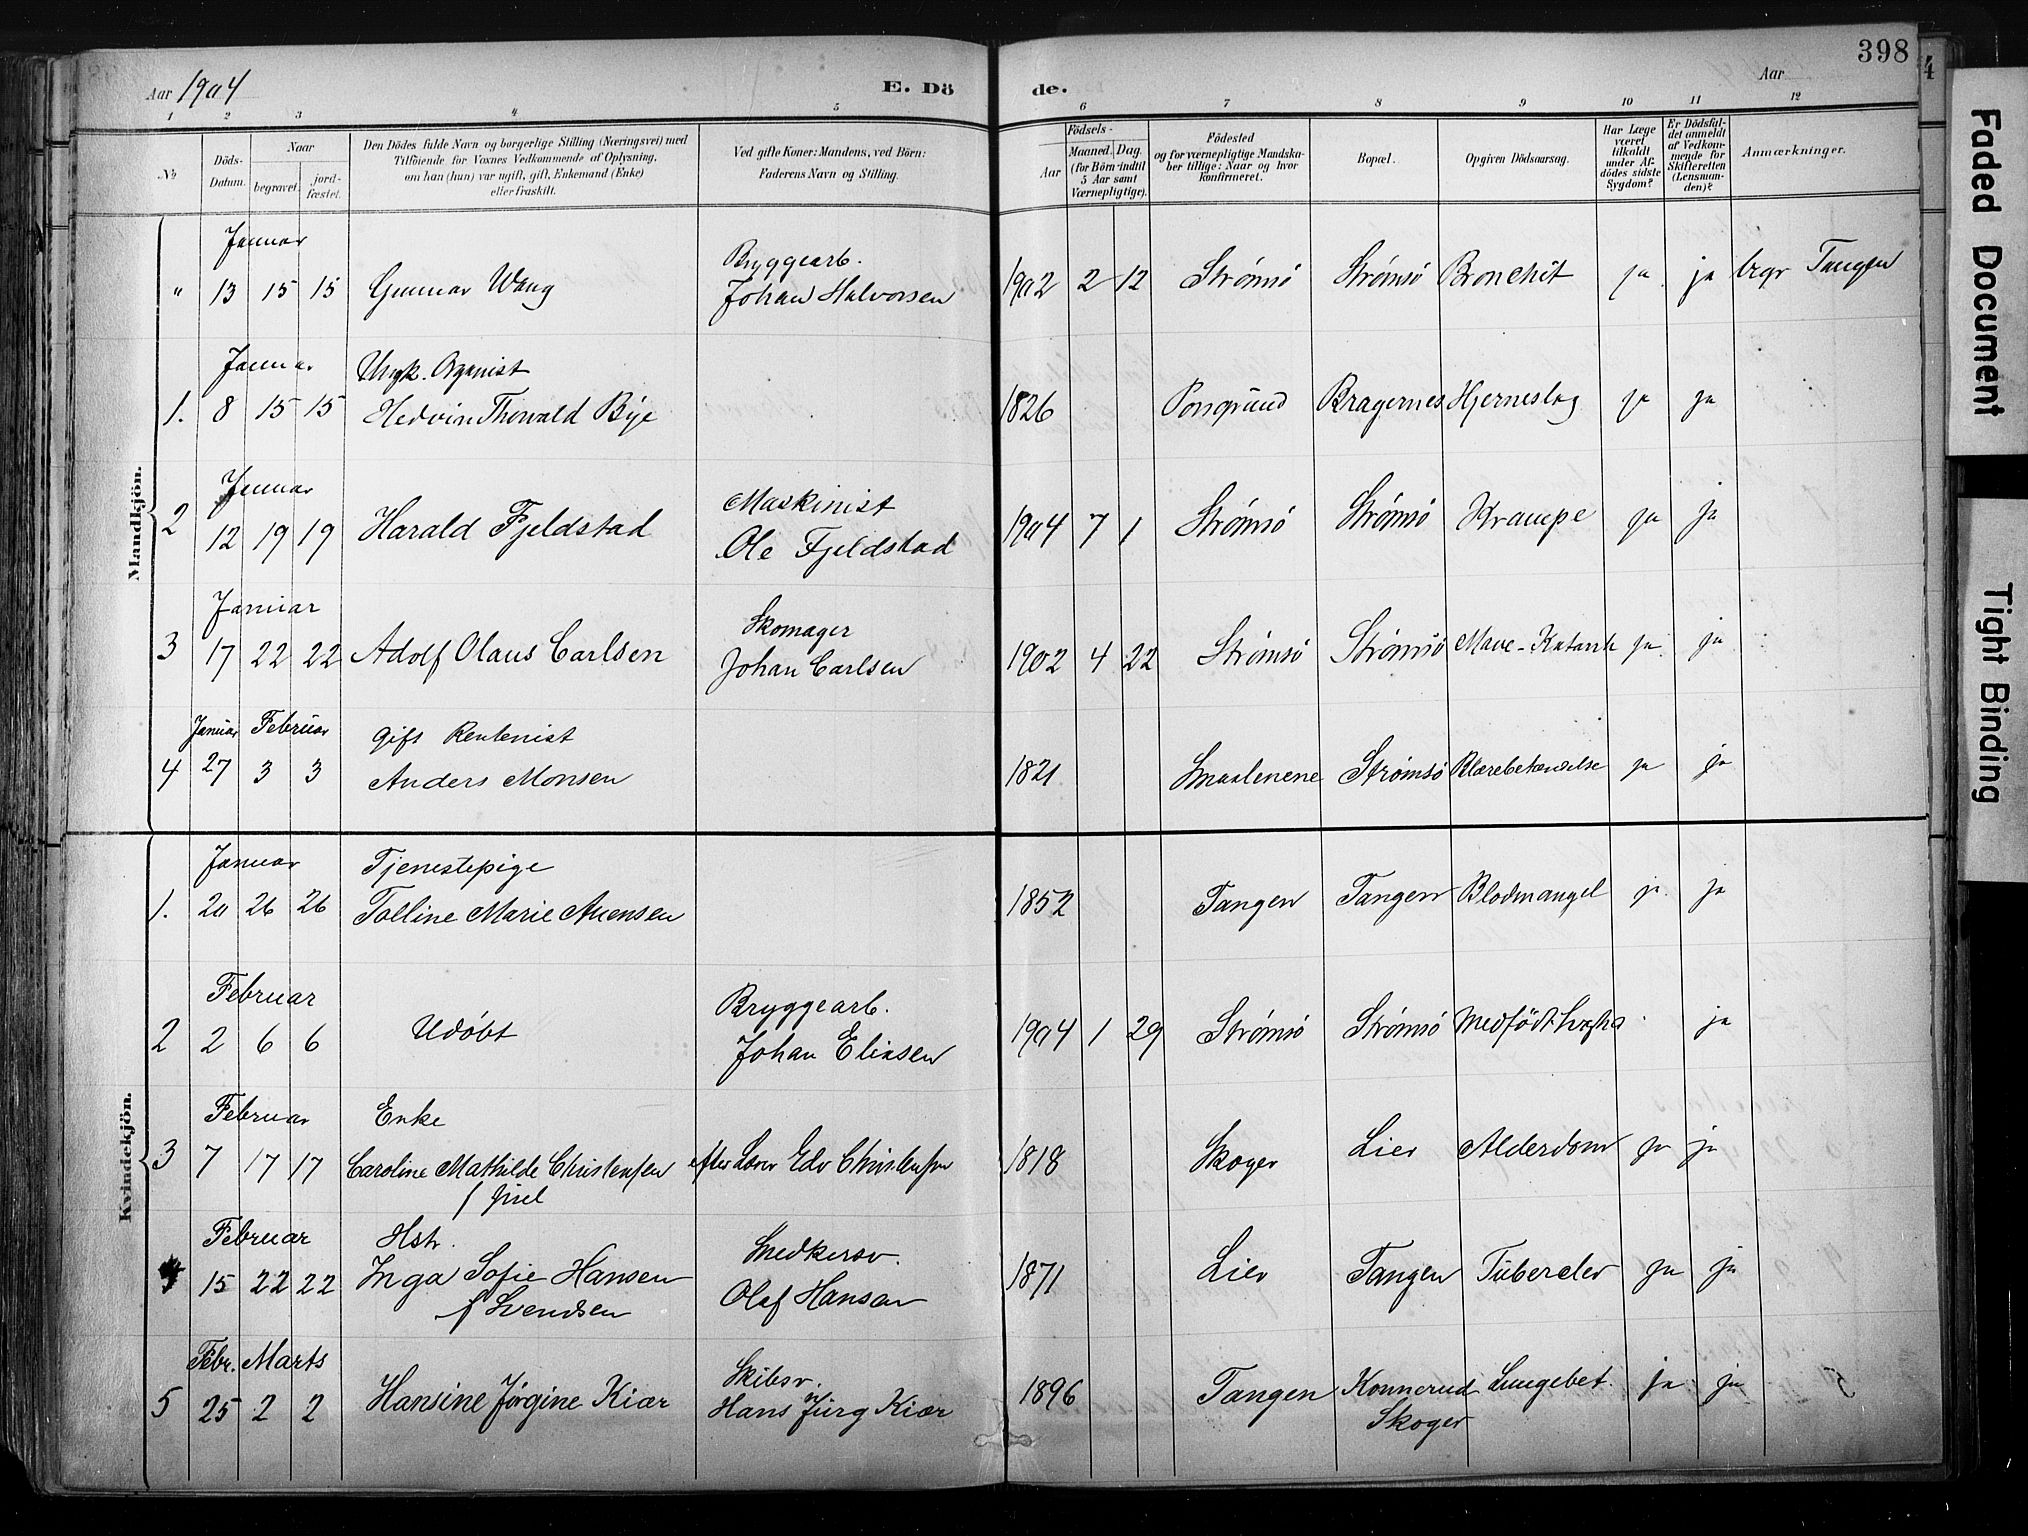 398
Aar 1904
E. Dö
de.
Aar
1 2 3 4 5 6 7 8 9 10 11 12
№
Döds-
Datum.
Naar
begravet.
jord-
fæstet.
Den Dödes fulde Navn og borgerlige Stilling (Næringsvei) med
Tilföiende for Voxnes Vedkommende af Oplysning,
om han (hun) var ugift, gift, Enkemand (Enke)
eller fraskilt.
Ved gifte Koner: Mandens, ved Börn:
Faderens Navn og Stilling.
Födsels-
Aar
Maaned. Dag.
(for Börn indtil
5 Aar samt
Værnepligtige).
Födested
og for værnepligtige Mandska-
ber tillige: Naar og hvor
konfirmeret.
Bopæl.
Opgiven Dödsaarsag.
Har Læge
været
tilkaldt
under Af-
dödes sidste
Sygdom?
Er Dödsfal-
det anmeldt
af Vedkom-
mende for
Skifteretten
(Lensman-
den)?
Anmærkninger.
Mandkjön.
Januar
" 13 15 15 Gunnar Wang
Bryggearb.
Johan Halvorsen
1902 2 12 Strømsö Strømsö Bronchit ja ja begr Tangen
Januar
Ungk. Organist
1. 8 15 15 Hedvin Thorvald Bye
1826 Porsgrund Bragernes Hjerneslag ja ja
Januar
2 12 19 19 Harald Fjeldstad
Maskinist
Ole Fjeldstad
1904 7 1 Strømsö Strømsö Krampe ja ja
Januar
3 17 22 22 Adolf Olaus Carlsen
Skomager
Johan Carlsen
1902 4 22 Strømsö Strømsö Mave-Katarrh ja ja
Januar Februar
gift Rentenist
4 27 3 3 Anders Monsen
1821 Smaalenene Strømsö Blærebetændelse ja ja
Kvindekjön.
Januar
Tjenestepige
1. 20 26 26 Tolline Marie
1852 Tangen Tangen Blodmangel ja ja
Februar
2 2 6 6 Udöbt
Bryggearb.
Johan Eliasen
1904 1 29 Strømsö Strømsö Medfödt ja
Februar
Enke
3 7 17 17 Caroline Mathilde Christensen
f
efter Lærer Edv Christensen
1818 Skoger Lier Alderdom ja ja
Februar
Hstr.
4 15 22 22 Inga Sofie Hansen
f Svendsen
Snedkersv.
Olaf Hansen
1871 Lier Tangen Tuberclev ja ja
Febr. Marts
5 25 2 2 Hansine Jörgine Kiær
Skibsv.
Hans Jürg Kiær
1896 Tangen Konnerud Lungebet. ja ja
Skoger
Faded Document
Tight Binding